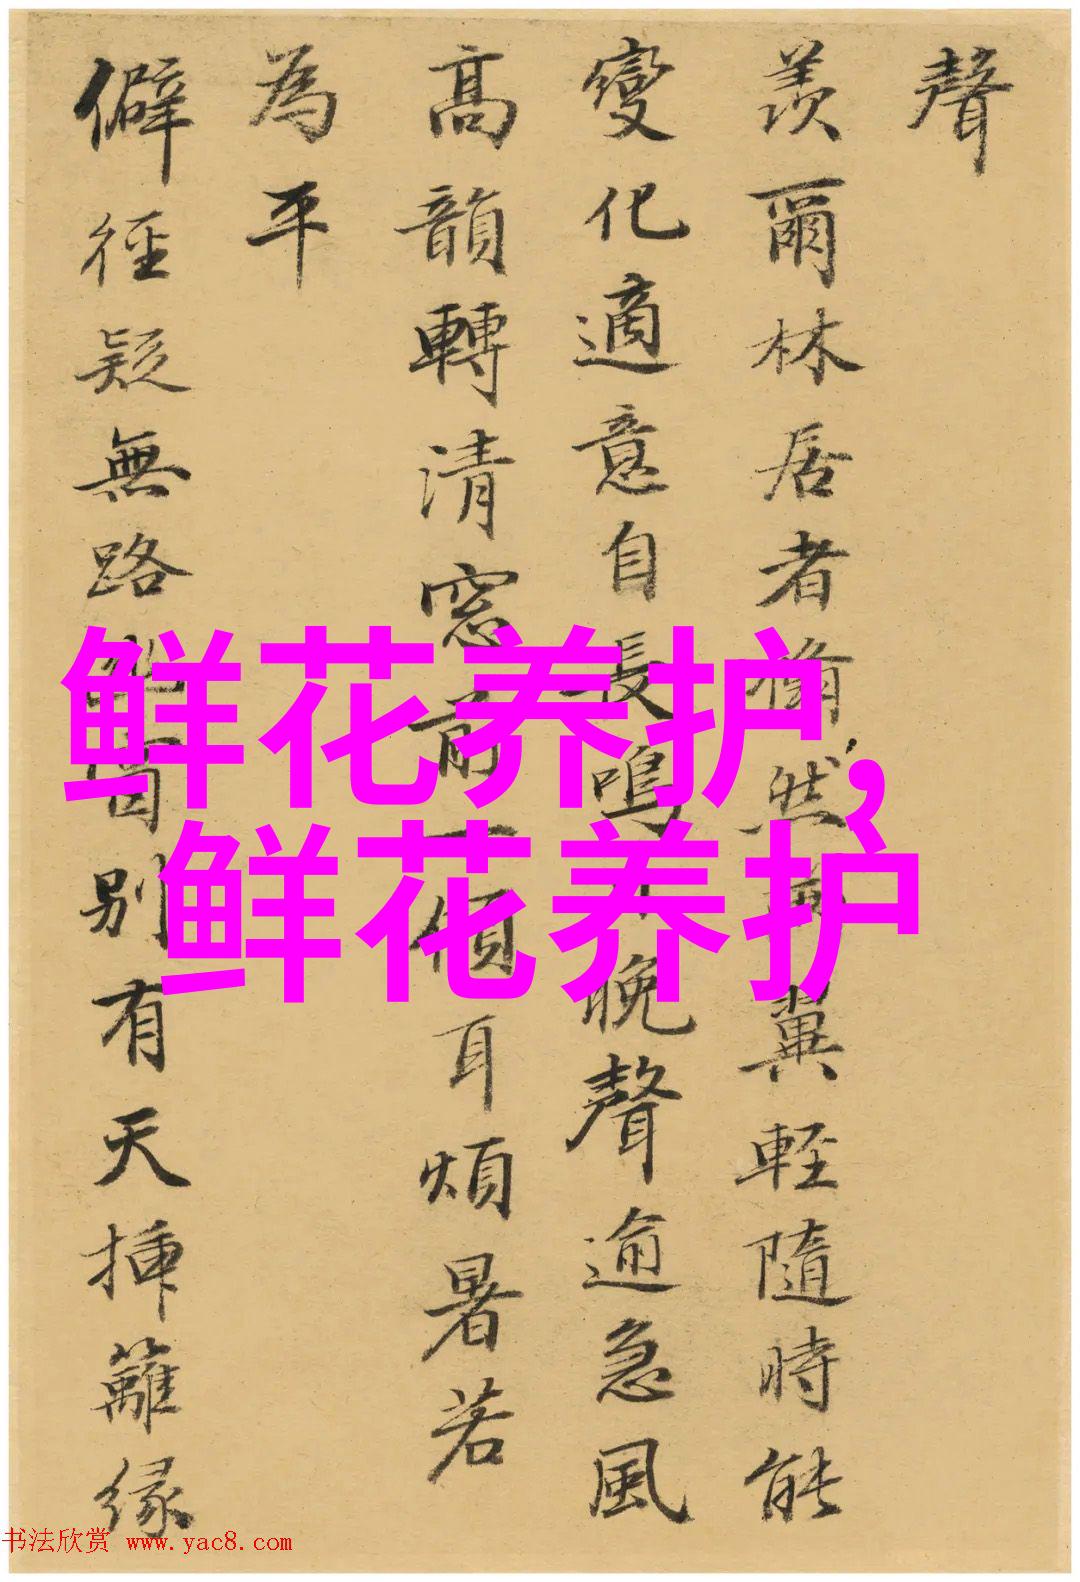 聲
羨爾林居者翛然兩翼輕隨時能
變化適意自長鳴晚聲逾急風
高韻轉清窓前一傾耳煩暑若
為平
僻徑疑無路別有天挿籬緣
鲜花养护，
鲜花养护
书法欣赏 www.yac8.com